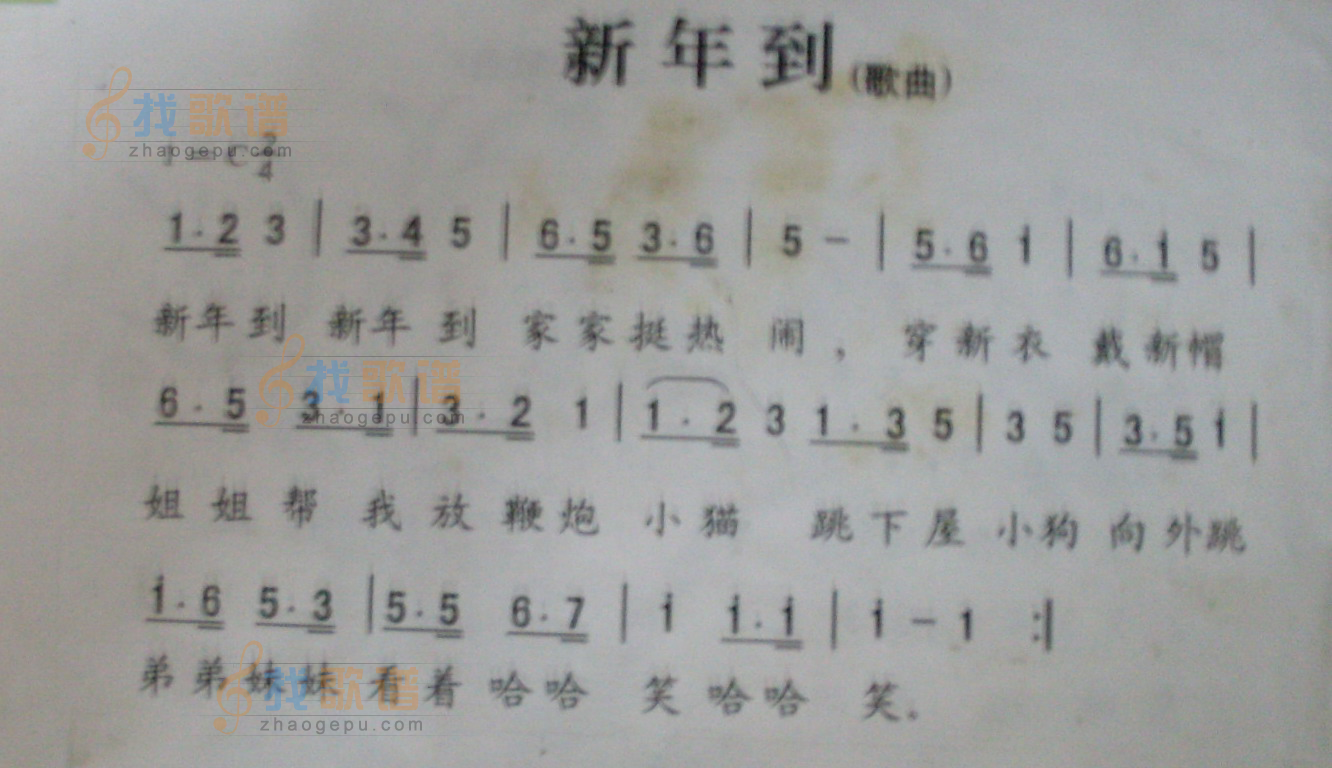 新年到(歌曲)
找歌谱
zhaogepu.com
1=C 2/4
1·2 3 | 3·4 5 | 6·5 3·6 | 5 – | 5·6 i | 6·i 5 |
新年到 新年到 家家挺热闹，穿新衣 戴新帽
找歌谱
zhaogepu.com
6·5 3·1 | 3·2 1 | 1·2 3 1·3 5 | 3 5 | 3·5 i |
姐姐帮我放鞭炮 小猫 跳下屋 小狗向外跳
i·6 5·3 | 5·5 6·7 | i i·i | i – 1 :|
弟弟妹妹看着哈哈 笑哈哈 笑。
找歌谱
zhaogepu.com